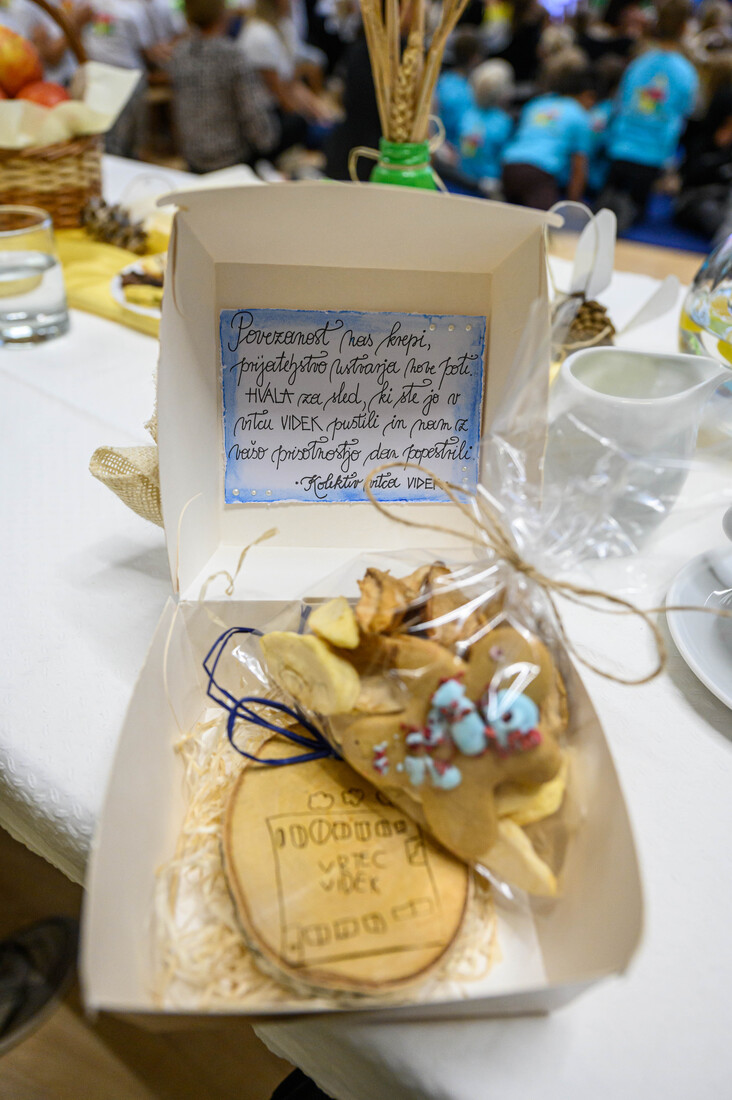 Povezanost nas krepi,
prijateljstvo ustvarja nove poti.
HVALA za sled, ki ste jo v
vrtcu VIDEK pustili in nam z
vašo prisotnostjo dan popestrili.
· Kolektiv vrtca VIDEK ·
VRTEC
VIDEK